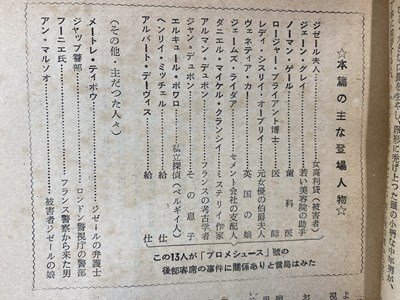 ☆本篇の主な登場人物☆
ジゼール夫人………女高利貸(被害者)
ジェーン・グレイ………若い美容院の助手
ノーマン・ゲール………歯科医
ロージャー・ブライアント博士………医師
レディ・シスリイ・オーブリイ………元女優の伯爵夫人
ヴェネティア・カー………英国の娘
ジェームズ・ライダア………セメント会社の支配人
ダニエル・マイケル・クランシイ………ミステリイ作家
アルマン・デュポン………フランスの考古学者
ジャン・デュポン………その息子
エルキュール・ポワロ………私立探偵(ベルギイ人)
ヘンリイ・ミッチェル………給仕
アルバート・デーヴィス………給仕
この13人が「プロメシュース」號の
後部客席の事件に関係ありと當局はみた
(その他・主だつた人々)
メートレ・ティボウ………ジゼールの弁護士
ジャップ警部………ロンドン警視庁の警部
フーニエ氏………フランス警察から来た男
アン・マルソオ………被害者ジゼールの娘